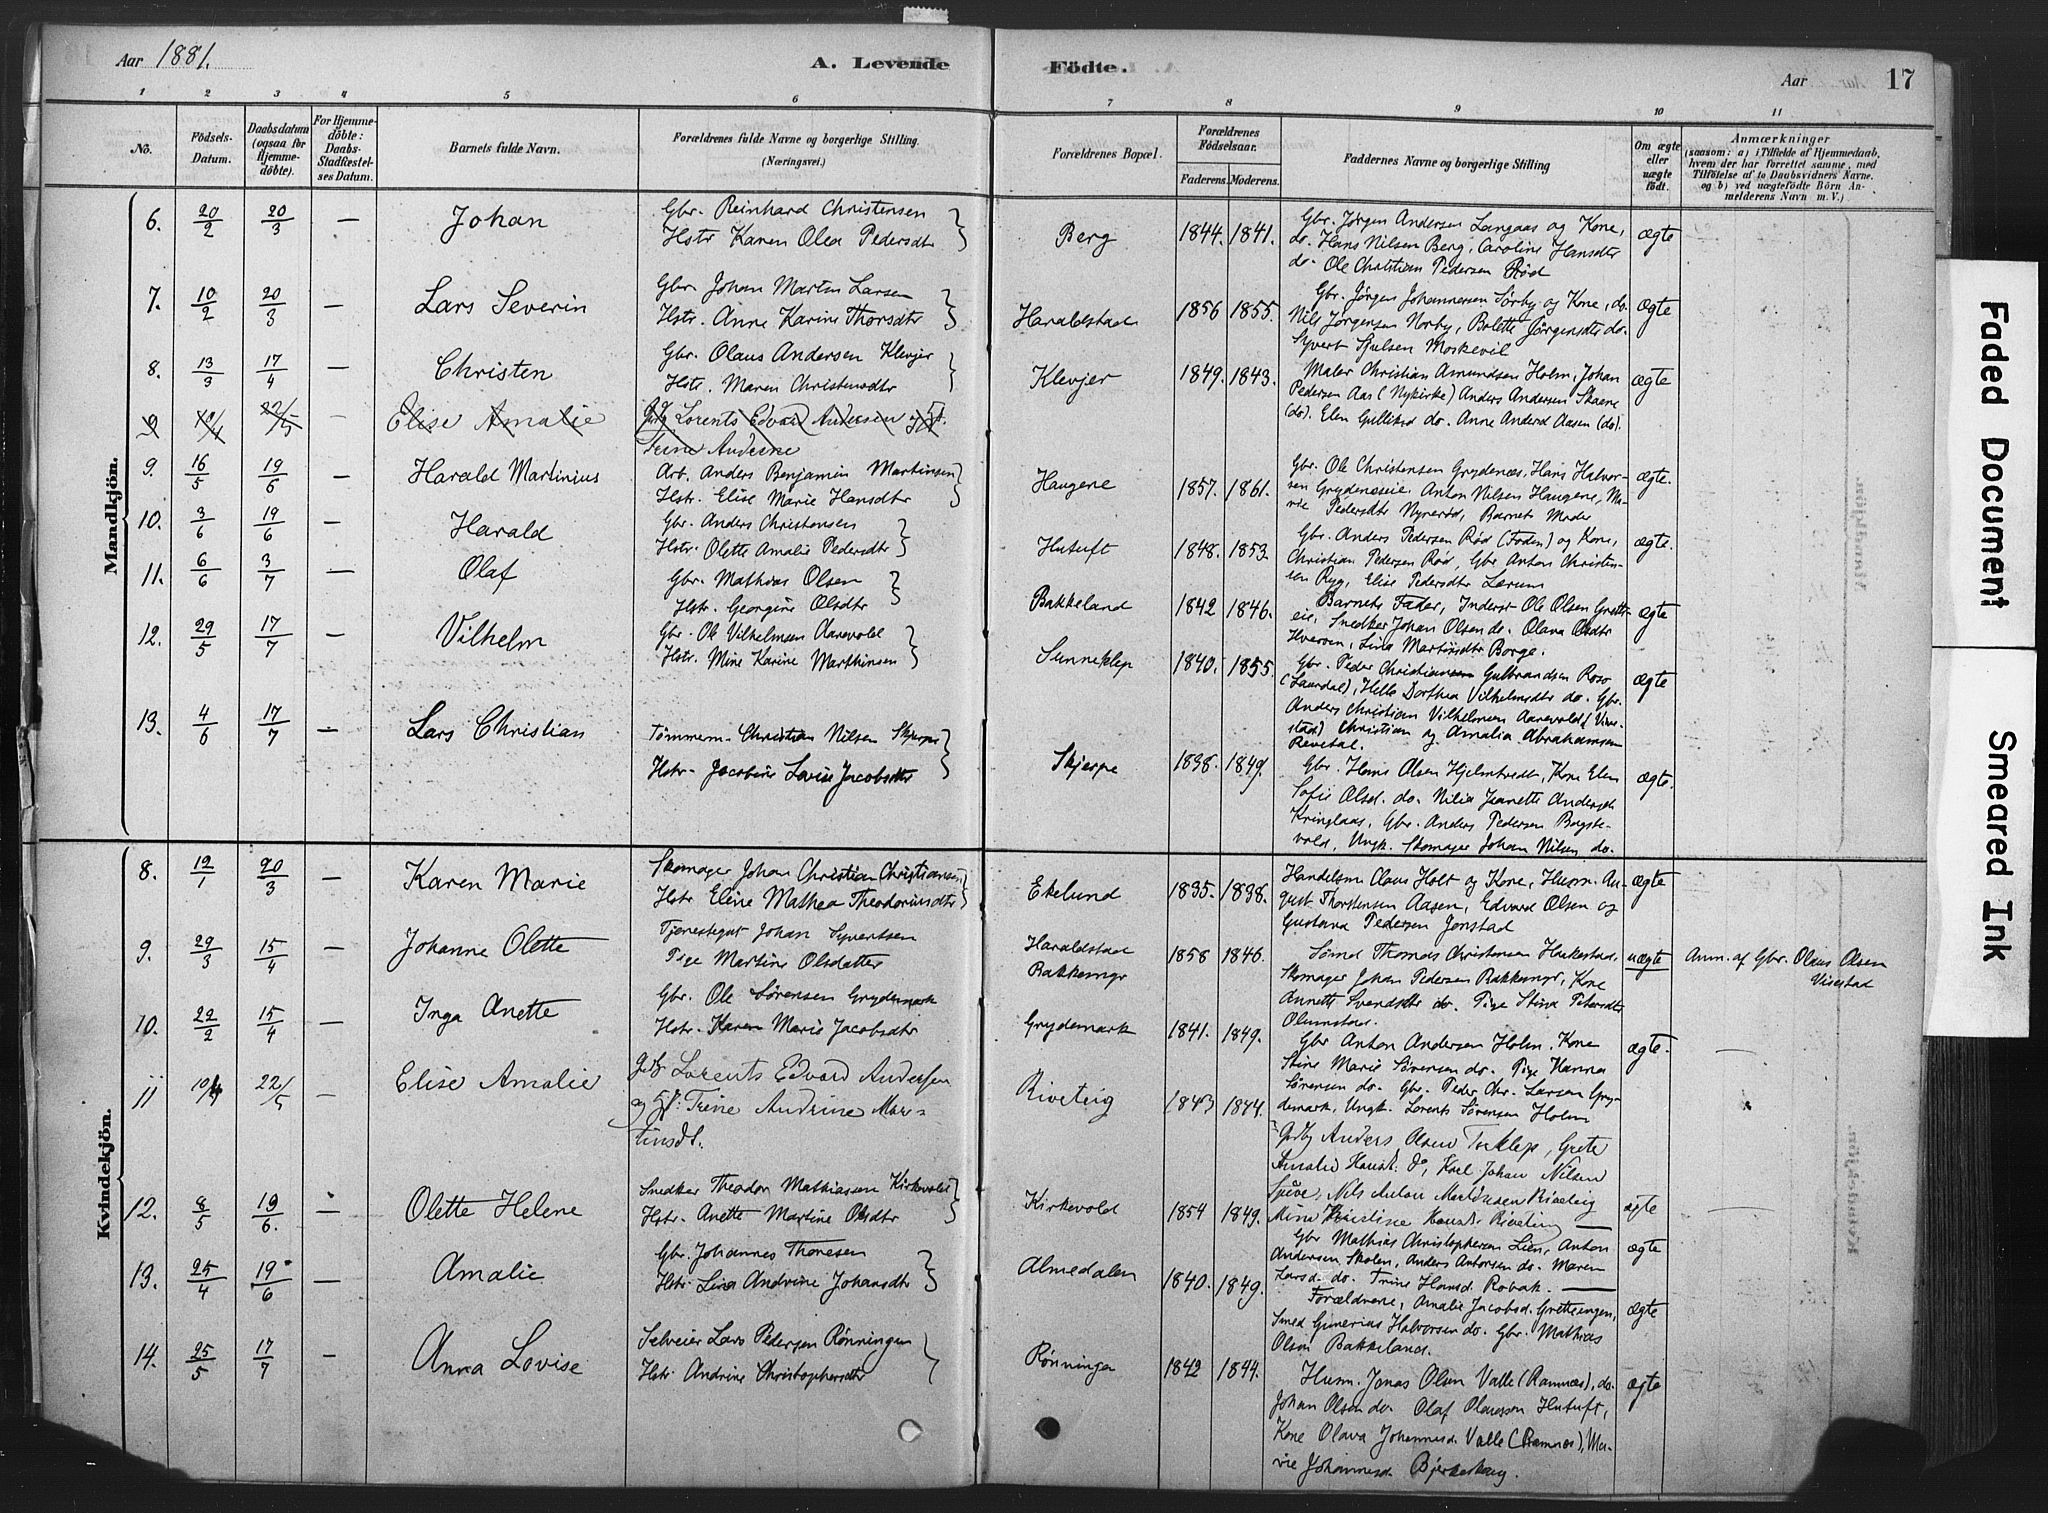 Aar 1881.
A. Levende
Födte.
Aar
17
1 2 3 4 5 6 7 8 9 10 11
No.
Födsels-Datum.
Daabsdatum (ogsaa for Hjemmedöbte).
For Hjemmedöbte: Daabs-Stadfæstelses Datum.
Barnets fulde Navn.
Forældrenes fulde Navne og borgerlige Stilling. (Næringsvei.)
Forældrenes Bopæl.
Forældrenes Födselsaar.
Faderens. Moderens.
Faddernes Navne og borgerlige Stilling
Om ægte eller uægte födt.
Anmærkninger
(saasom: a) i Tilfælde af Hjemmedaab, hvem der har forrettet samme, med Tilföielse af to Daabsvidners Navne. og b) ved uægtefödte Börn Anmelderens Navn m. V.)
Mandkjön.
6. 20/2 20/3 — Johan
Gbr. Reinhard Christensen
Hstr Karen Olea Pedersdtr
Berg 1844. 1841.
Gbr. Jørgen Andersen Langaas og Kone,
do. Hans Nilsen Berg, Caroline Hansdtr
do. Ole Christian Pedersen Rød
ægte
7. 10/2 20/3 — Lars Severin
Gbr. Johan Martin Larsen
Hstr. Anne Karine Thorsdtr
Haraldstad 1856 1855.
Gbr. Jørgen Johannesen Sørby og Kone, do.
Nils Jørgensen Norby, Bolette Jørgensdtr do.
Syvert Sjulsen Moskevil
ægte
8. 13/3 17/4 — Christen
Gbr. Olaus Andersen Klevjer
Hstr. Maren Christensdtr
Klevjer 1849. 1843.
Maler Christian Amundsen Holm, Johan
Pedersen Aas (Nykirke) Anders Andersen Skaene
(do). Elen Gulliksd do. Anne Andersd Aasen (do).
ægte
9 10/4 22/5 — Elise Amalie
Gbr Lorents Edvard Andersen og H.
Trine Andrine
9. 16/5 19/6 — Harald Martinius
Arb. Anders Benjamin Martinsen
Hstr. Elise Marie Hansdtr
Haugene 1857. 1861.
Gbr. Ole Christensen Grydenæs, Hans Halvor-
sen Grydenæseie, Anton Nilsen Haugene, Ma-
rie Pedersdtr Nyrerød, Barnets Moder
ægte.
10. 3/6 19/6 — Harald
Gbr. Anders Christensen
Hstr. Olette Amalie Pedersdtr
Hutuft 1848. 1853
Gbr. Anders Pedersen Rød (Foden) og Kone,
Christian Pedersen Rød, Gbr Anton Christen-
sen Ryg, Elise Pedersdtr Lerum
ægte.
11. 6/6 3/7 — Olaf
Gbr. Mathias Olsen
Hstr. Georgine Olsdtr
Bakkeland 1842 1846.
Barnets Fader, Inderst Ole Olsen Grette-
eie, Snedker Johan Olsen do. Olava Olsdtr
Hverven, Lina Martinsdtr Borge.
ægte
12. 29/5 17/7 — Vilhelm
Gbr. Ole Vilhelmsen Aarevold
Hstr. Mine Karine Marthinsen
Sunneklep 1840. 1855.
Gbr. Peder Christiansen Gulbrandsen Roso
(Laurdal), Helle Dorthea Vilhelmsdtr do. Gbr.
Anders Christian Vilhelmsen Aarevold (Vive-
stad) Christian og Amalia Abrahamsen
Revetal.
ægte
13. 4/6 17/7 — Lars Christian
Tømmerm. Christian Nilsen Skjerpe
Hstr. Jacobine Lovise Jacobsdtr
Skjerpe 1838. 1849.
Gbr. Hans Olsen Hjelmtvedt, Kone Elen
Sofie Olsd. do. Nilia Jeanette Andersdtr
Kringlaas, Gbr. Anders Pedersen Bergste-
vold, Ungk. Skomager Johan Nilsen do.
ægte.
Kvindekjön.
8. 12/1 20/3 — Karen Marie
Skomager Johan Christian Christiansen
Hstr Eline Mathea Theodorinsdtr
Ekelund 1835. 1838.
Handelsm Claus Holt og Kone, Husm. Au-
gust Thorstensen Aasen, Edvard Olsen og
Gustava Pedersen Jonstad
ægte
9. 29/3 15/4 — Johanne Olette
Tjenestegut Johan Syvertsen
Pige Martine Olsdatter
Haraldstad
Bakkemyr 1858 1846.
Sømd Thomas Christensen Hakestad,
Skomager Johan Pedersen Bakkemyr, Kone
Annette Svendsdtr do. Pige Stina Petersdtr
Olumstad.
uægte
Anm. af Gbr. Olaus Olsen
Vivestad
10. 22/2 15/4 — Inga Anette
Gbr. Ole Sørensen Grydemark
Hstr. Karen Marie Jacobsdtr
Grydemark 1841. 1849.
Gbr Anton Andersen Holm, Kone
Stine Marie Sørensen do. Pige Hanna
Sørensen do. Gbr. Peder Chr. Larsen Gry-
demark, Ungk. Lorents Sørensen Holm
ægte. —
11 10/4 22/5 — Elise Amalie
Gdb. Lorents Edvard Andersen
og H. Trine Andrine Mar-
tinsdt.
Riveteig 1843 1844.
Gdb Anders Olsen Tuklep, Grete
Amalie Hansd. do, Karl Johan Nilsen
Spive, Nils Anton Martinsen Riveteig
Mina Kristine Hansd. Riveteig —
ægte —
12. 8/5 19/6. — Olette Helene
Snedker Theodor Mathiassen Kirkevold
Hstr. Anette Martine Olsdtr
Kirkevold 1854 1849.
Gbr Mathias Christophersen Lien, Anton
Andersen Skolen, Anders Antonsen do. Maren
Larsd. do. Trine Hansd. Robak. —
ægte
13. 25/4 19/6 — Amalie
Gbr. Johannes Thoresen
Hstr. Lina Andrine Johansdtr
Almedalen 1840. 1849.
Forældrene, Amalie Jacobsd. Gretteeingen,
Smed Gunerius Halvorsen do. Gbr. Mathias
Olsen Bakkeland.
ægte
14. 25/5 17/7 — Anna Lovise
Selveier Lars Pedersen Rønningen
Hstr. Andrine Christophersdtr
Rønningen 1842 1844.
Husm. Jonas Olsen Valle (Ramnæs), do.
Johan Olsen do. Olaf Olaussen Hutuft,
Kone Olava Johannesd. Valle (Ramnæs), Ma-
rie Johannesd. Bjerkeskaug.
ægte
Faded Document
Smeared Ink